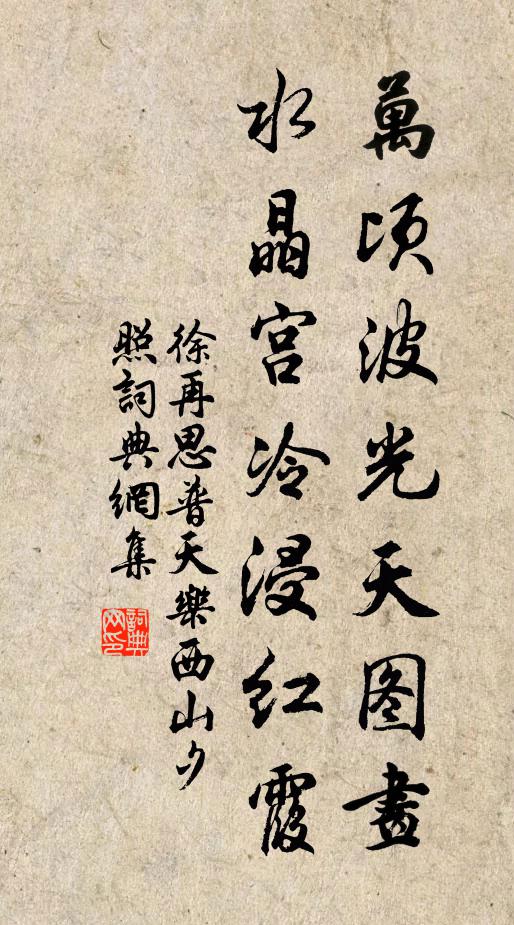 萬頃波光天图畫
水晶宮冷浸红霞
徐再思普天樂西山夕
照詞典網集
詞典網印